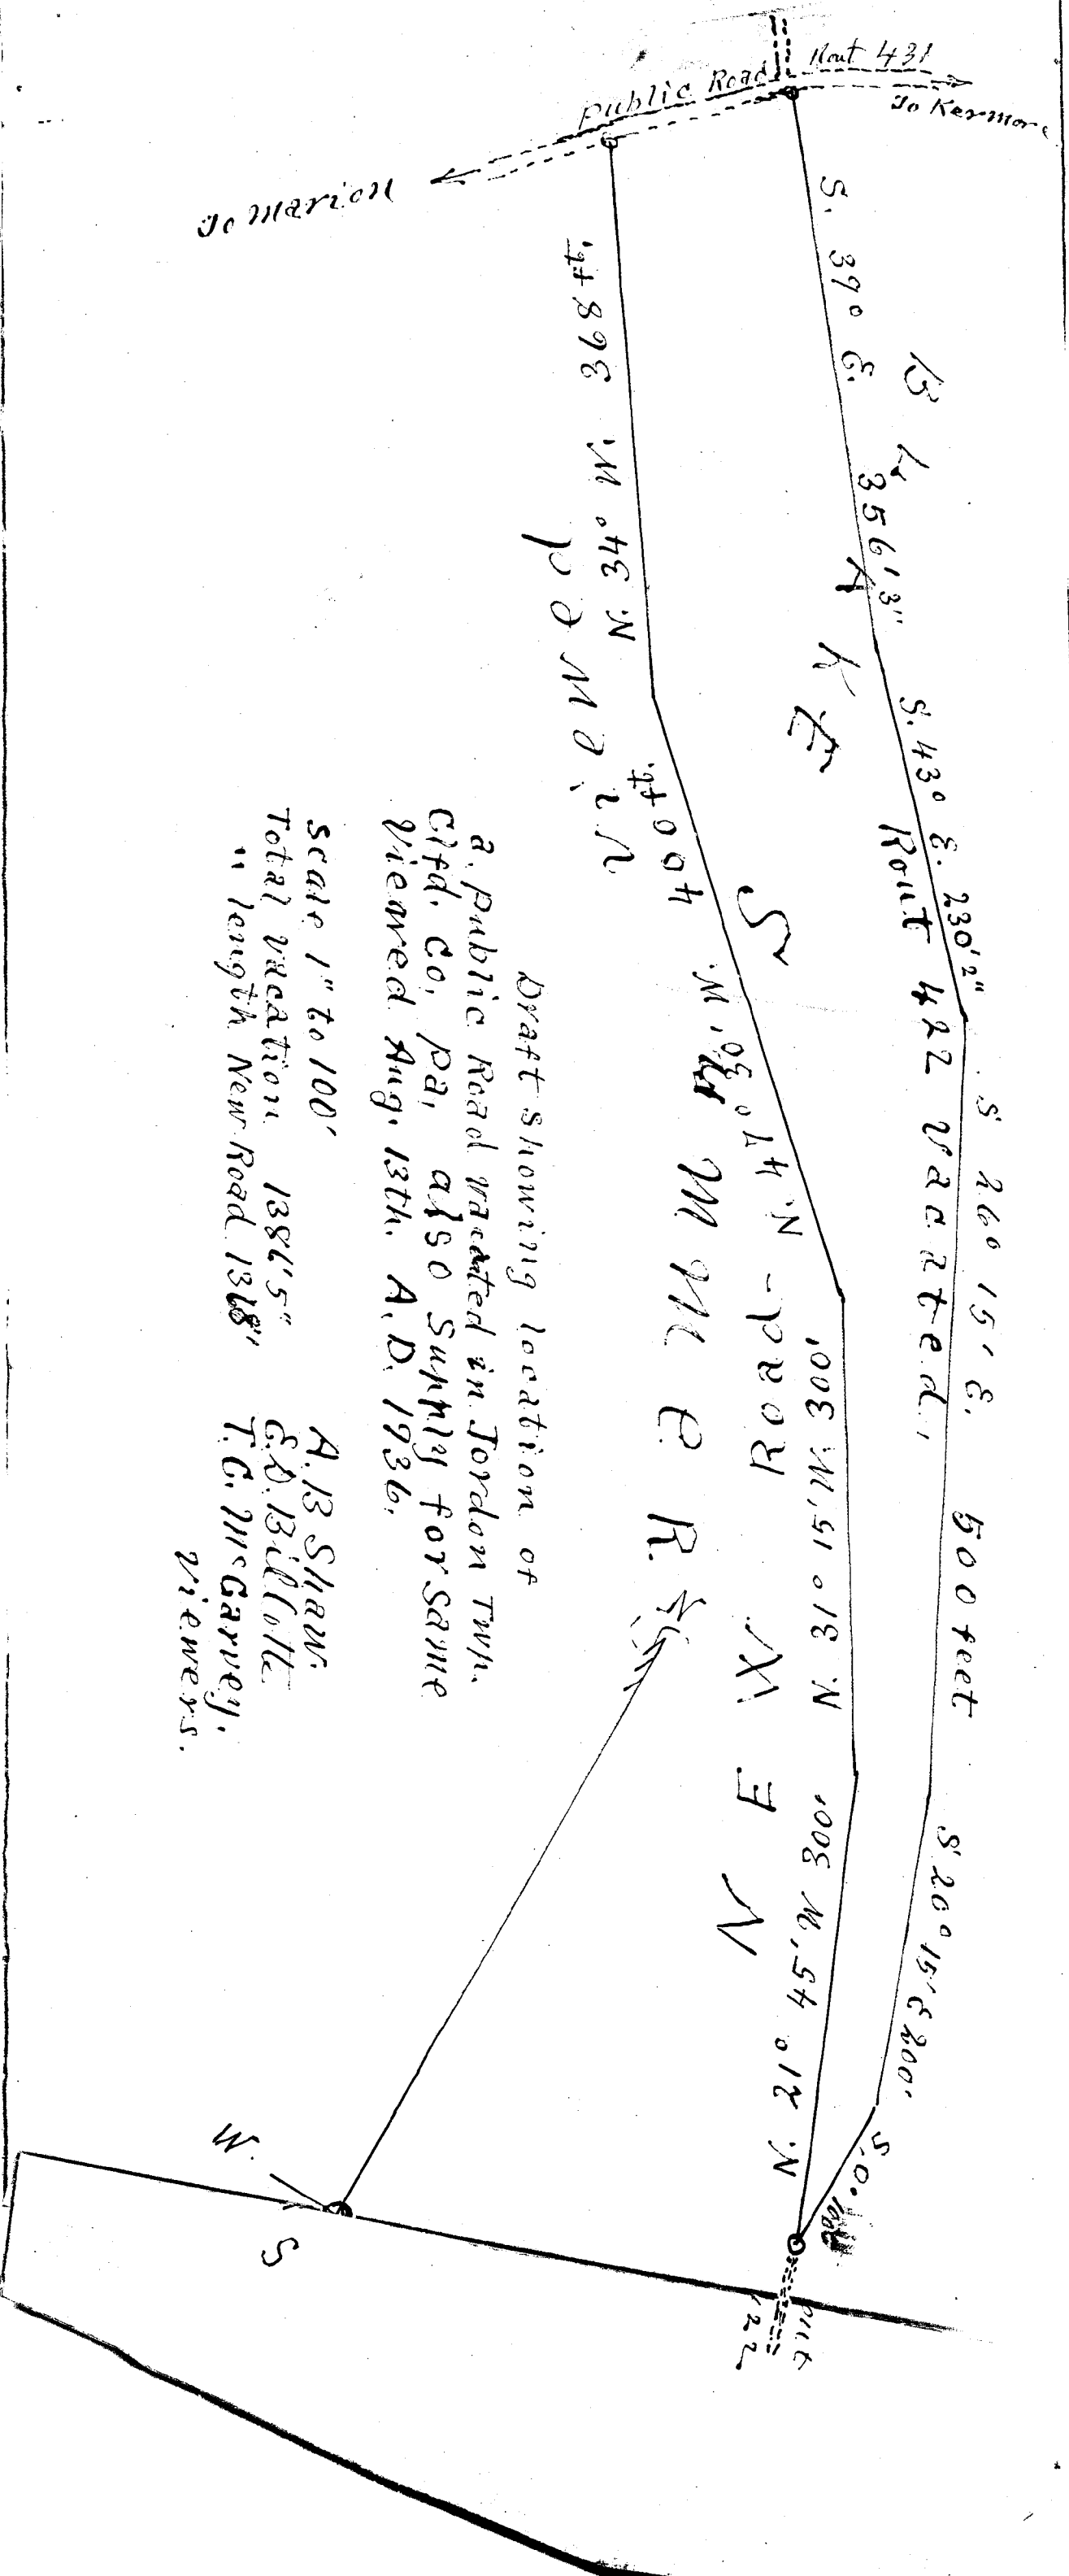 Rout 431
Public Road
To Kermore
To Marion
S. 39° E. 356'3"
S. 43° E. 230'2"
S 26° 15' E. 500 feet
S. 20° 15' E 200'
S. 0° 100'
BLAKE
Rout 422 vacated,
N. 34° W. 368 ft.
viewed
N. 47° 30' W. 400 ft.
N. 31° 15' W. 300'
N. 21° 45' W 300'
SUMMER
NEW Road-
22
Draft showing location of
a public Road vacated in Jordon Twp.
Clfd. Co. pa. also Supply for same
Viewed Aug. 13th. A.D. 1936.
Scale 1" to 100'
Total vacation 1386'5"
" length New Road 1368'
A. B Shaw.
E.D. Billotte
T. G. McGarvey.
Viewers.
N
W.
S